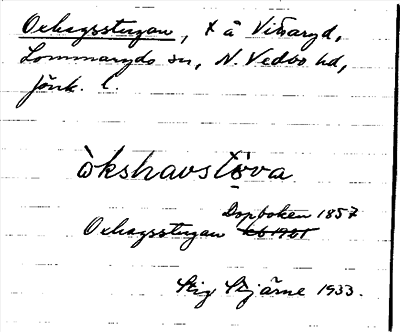 Oxhagsstugan, x å Vittaryd,
Lommaryds sn, N. Vedbo hd,
Jönk. l.
òkshavstöva
Dopboken 1857
Oxhagsstugan
Stig Stjärne 1933.